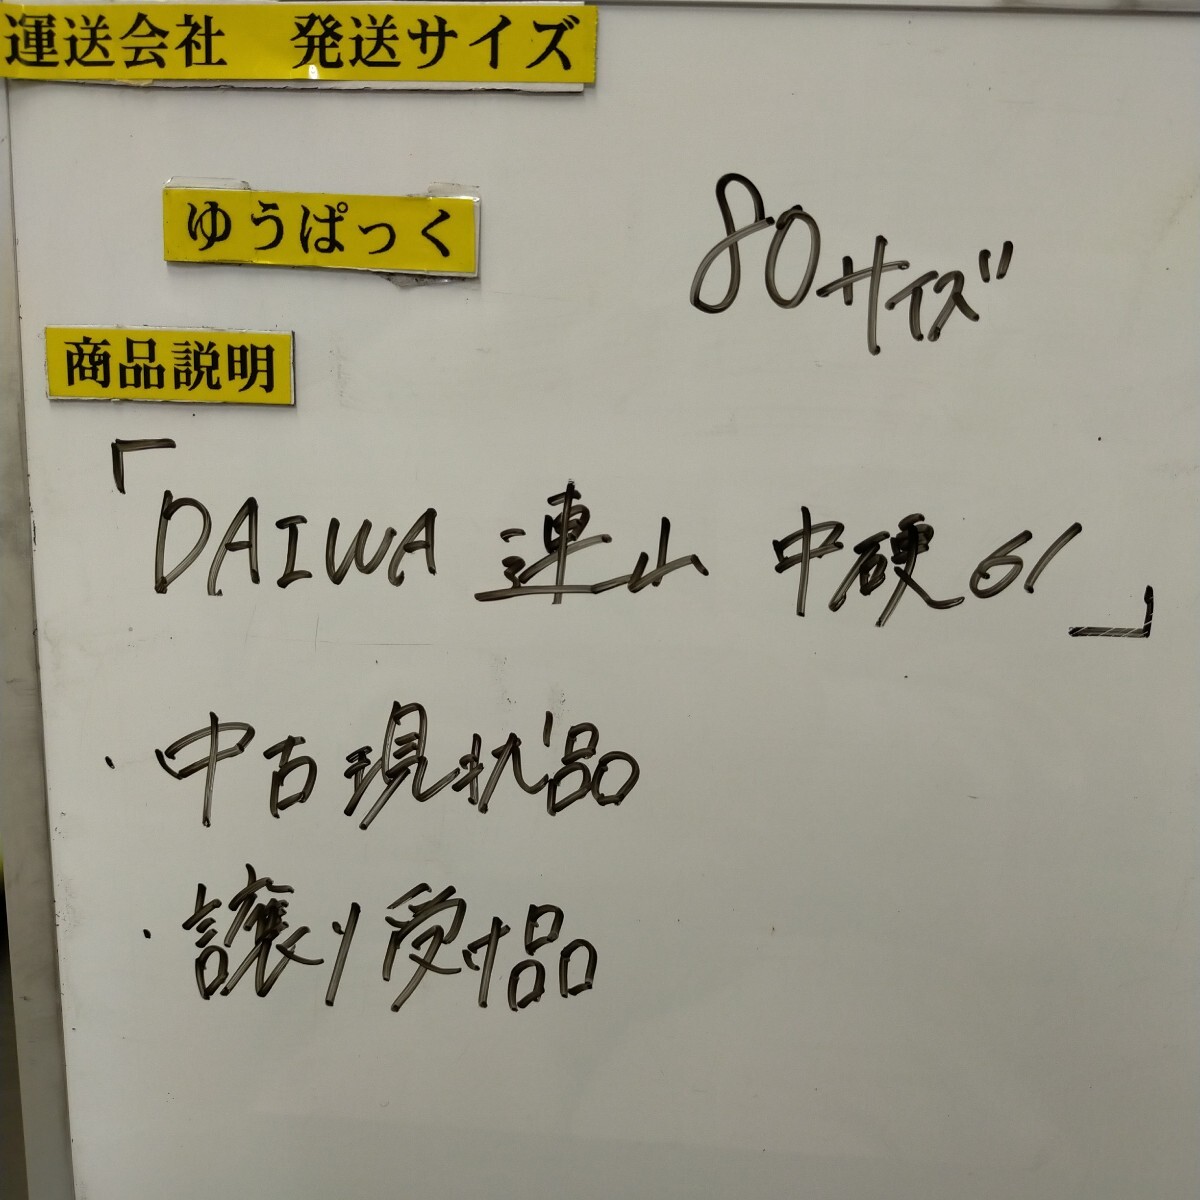 運送会社 発送サイズ
ゆうぱっく 80サイズ
商品説明
「DAIWA 連山 中硬 61」
・中古現状品
・譲り受け品